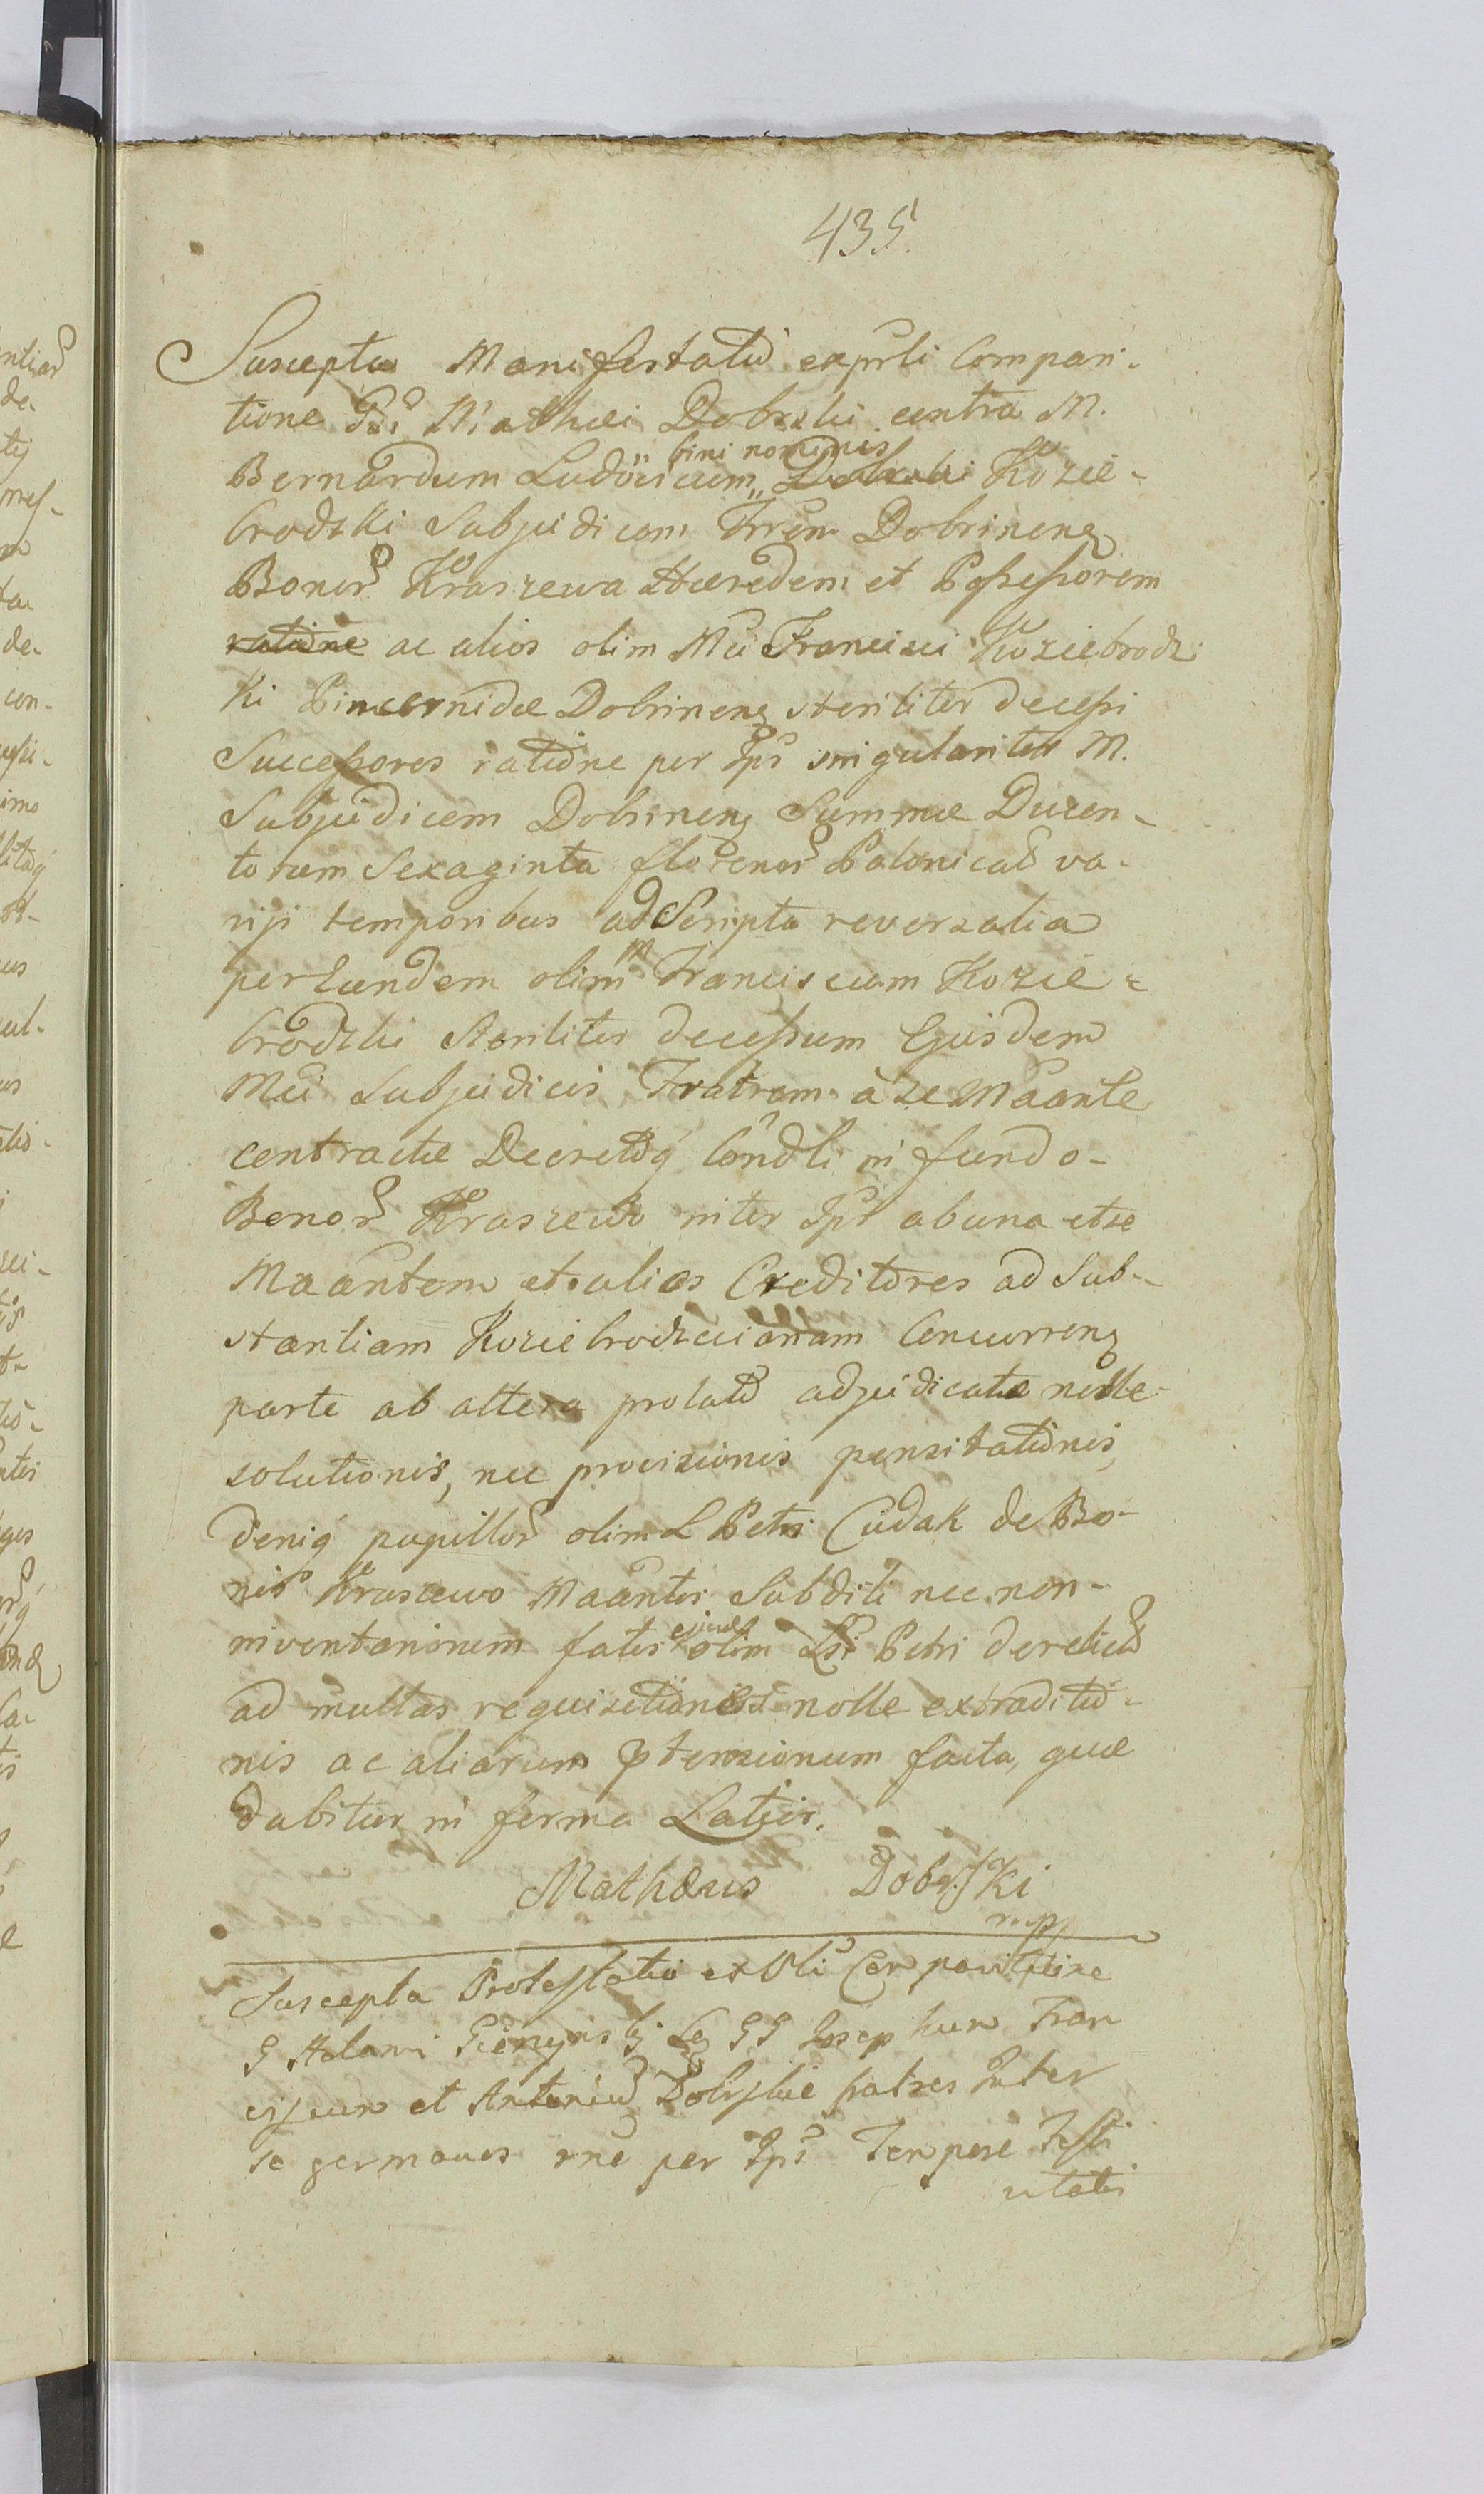 435.
Suscepta Manifestatio exprśli Compari-
tione Gsi Mathæi Dobrski contra M.
Bernardum Ludovicum „bini nominis„ Dobrski Kozie-
brodzki Subjudicem Trrem Dobrinens
Bonor Kraszewa Hæredem et Possessorem
ratione ac alios olim Mci Francisci Koziebrodz-
ki Pincernidæ Dobrinens steriliter decessi
Successores ratione per Ips singulariter M.
Subjudicem Dobrinens Summæ Ducen-
torum Sexaginta florenor Polonical va-
riji temporibus ad Scripta reversalia
per Eundem olim M Franciscum Kozie-
brodzki Steriliter decessum Ejusdem
Mci Subjudicis Fratrem à se Maante
contractæ Decretoq Condli in fundo
Bonor Kraszewo inter Ips ab una et se
Maantem et alios Creditores ad Sub-
stantiam Koziebrodzcianam Concurrens
parte ab altera prolato adjudicatæ nolle
solutionis, nec provizionis pensitationis,
deniq pupillor olim L Petri Cudak de Bo-
nis Kraszewo Maantis Subditi nec non
inventariorum fatis ejusd olim Lsi Petri derelicto
ad multas requisitiones nolle extraditio-
nis ac aliarum ptensionum facta, quæ
dabitur in forma Latior.
Mathæus Dobrski
mp
Suscepta Protestatio ex Obli Comparitione
G Adami Lc GG Josephum Fran
ciscum et Antonium Dobrskie fratres Inter
se germanos rne per Ips Tempore Festi
vitatis